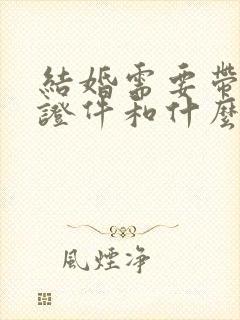 結婚需要帶
證件和什麼
風煙净